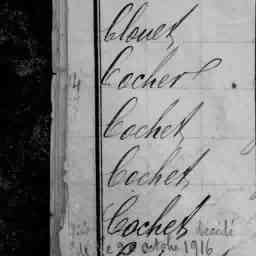 Clouet
Cocher
Cochet
Cochet
Cochet décédé
le 20 octobre 1916